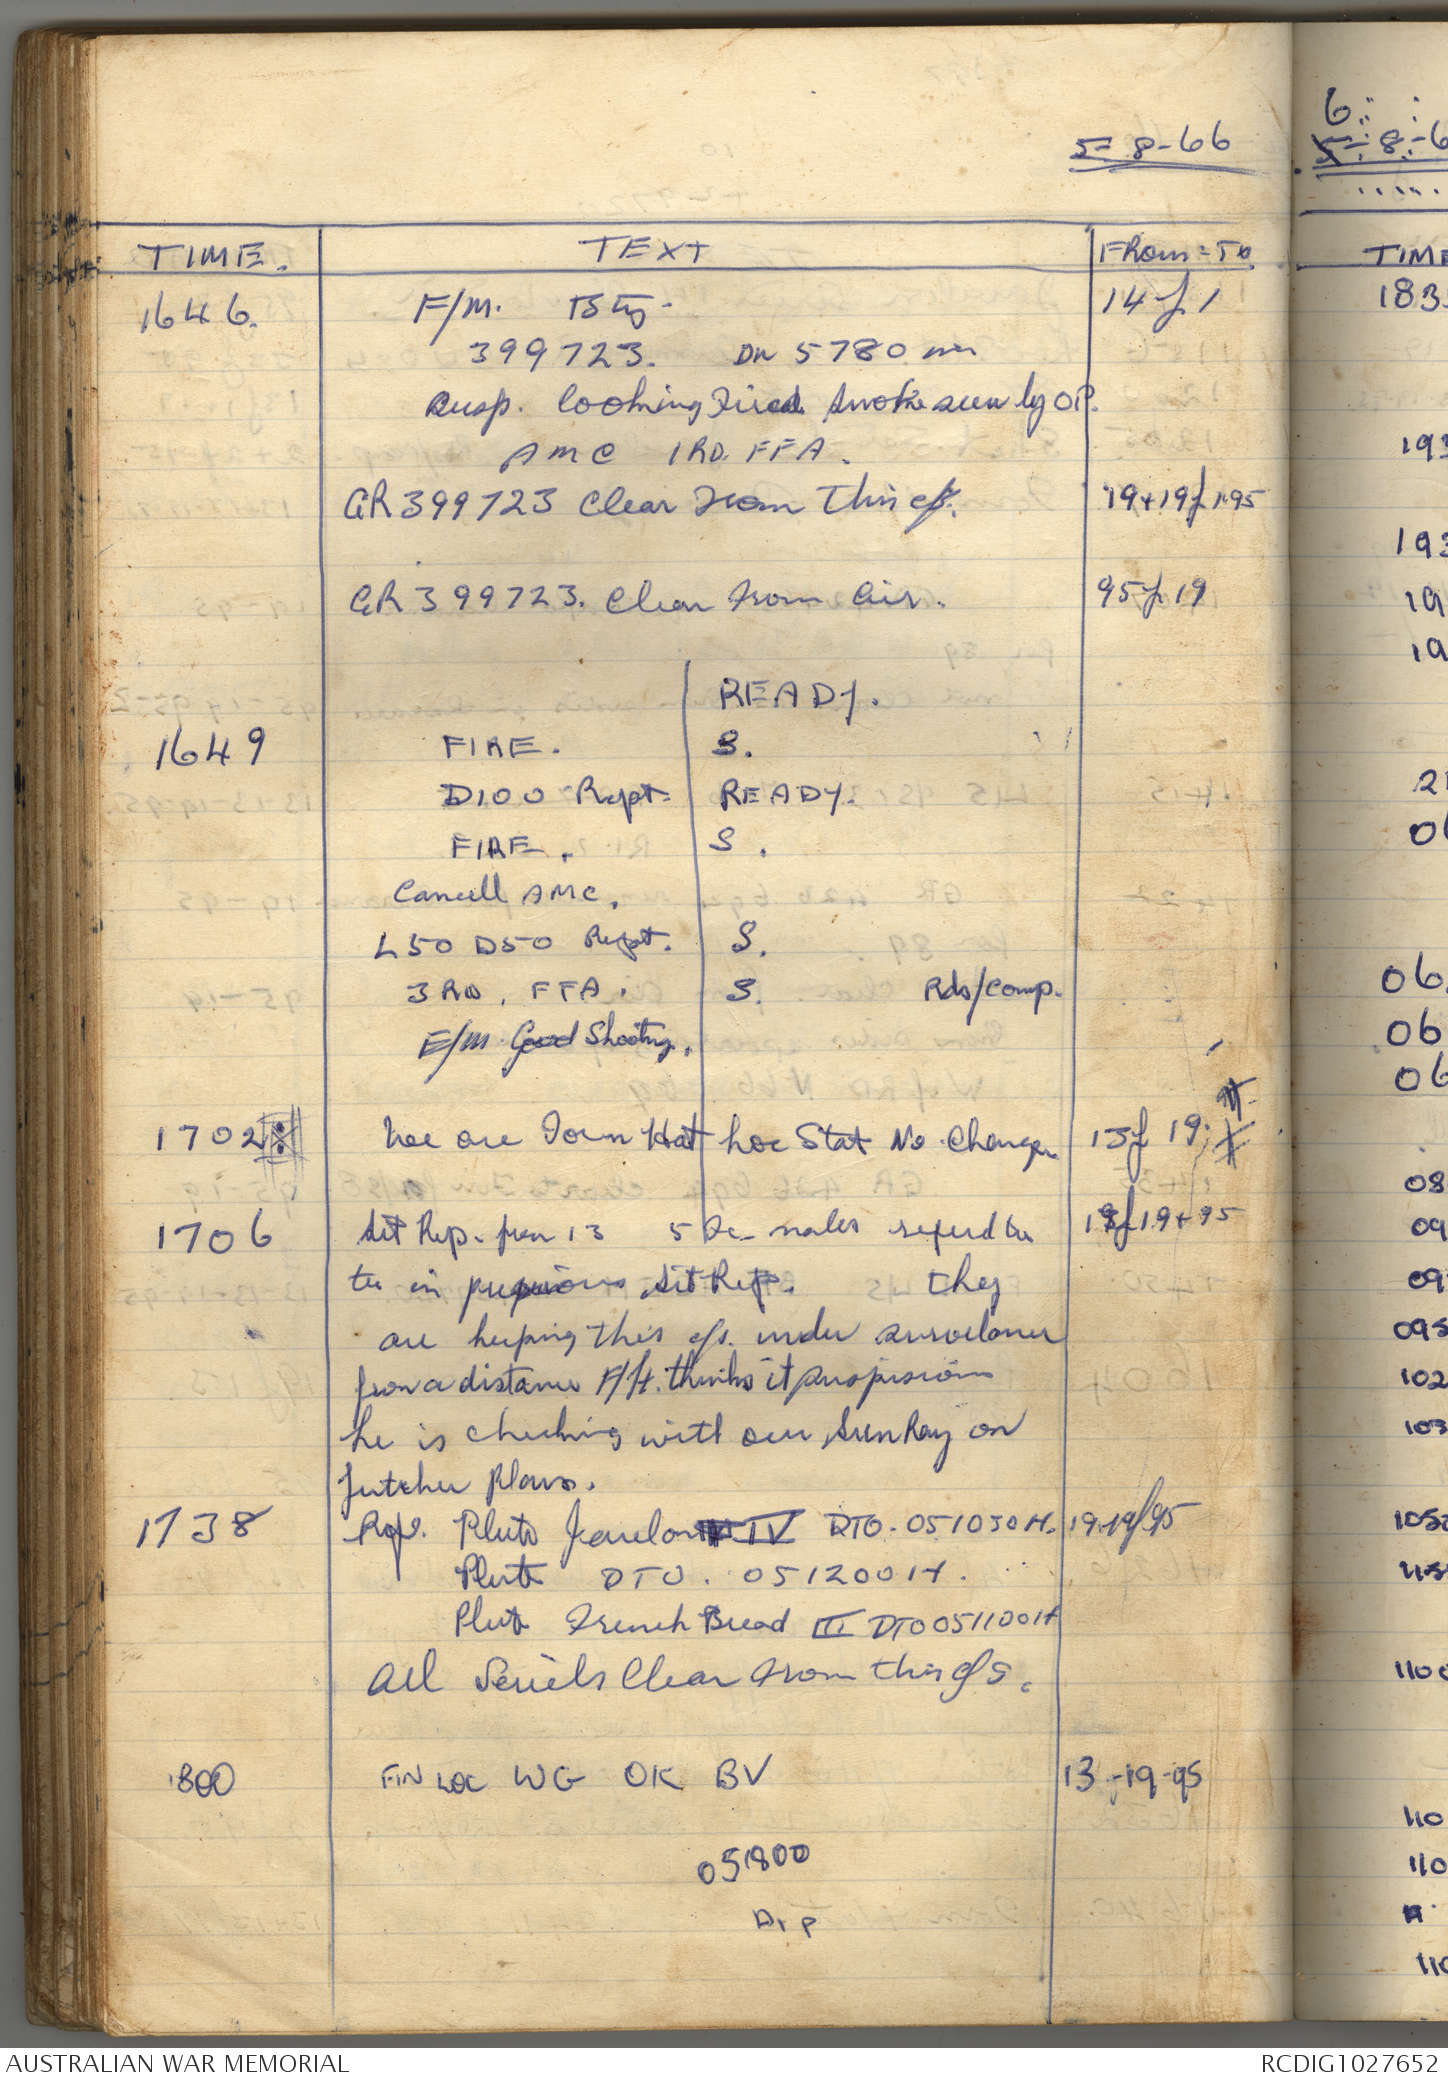 5-8-66
TIME. TEXT FROM-TO
1646. F/M. Bty. 14 f 1
399723. DN 5780 mm
Susp. looking Fired Smoke seen by OP.
AMC 1 RD. FFA.
GR 399723 Clear From This c/s. 19+19f1-95
GR 399723. Clear From Air. 95 f 19
READY.
1649 FIRE. S.
D100 Rept. READY.
FIRE. S.
Cancell AMC.
L50 D50 Rept. S.
3 RD. FFA. S. Rds/Comp.
E/M Good Shooting.
1702 Loc Stat No Change 13f 19
1706 Sit Rep. from 13 5 males
to in previous Sit Rep. they
are keeping this c/s. under
from a distance thinks it
he is checking with our SunRay on
futcher Plans.
1738 Pluto IV DTO. 051030H. 19.19f95
Pluto DTO. 051200H.
Pluto French Bread III DTO 051100H
All Seriels Clear From this c/s.
1800 FIN LOC WG OK BV 13-19-95
051800
6
8-6
TIME
183
193
193
19
19
21
06
06
06
08
09
09
095
102
103
105
110
110
110
110
AUSTRALIAN WAR MEMORIAL RCDIG1027652